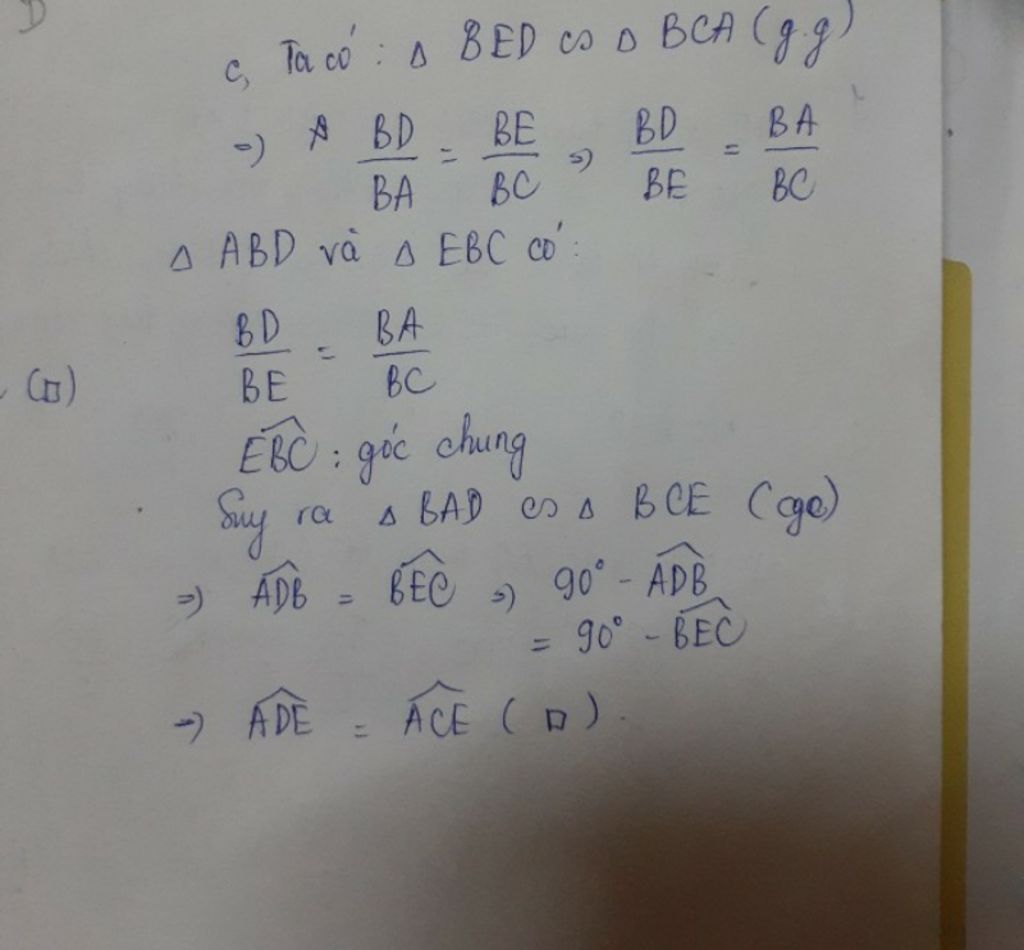 D
c, Ta có: Δ BED ∽ Δ BCA (g.g)
⇒) BD/BA = BE/BC ⇒) BD/BE = BA/BC
Δ ABD và Δ EBC có:
BD/BE = BA/BC
(□)
EBC^ : góc chung
Suy ra Δ BAD ∽ Δ BCE (cgc)
⇒) ADB^ = BEC^ ⇒) 90° - ADB^
= 90° - BEC^
⇒) ADE^ = ACE^ (□).